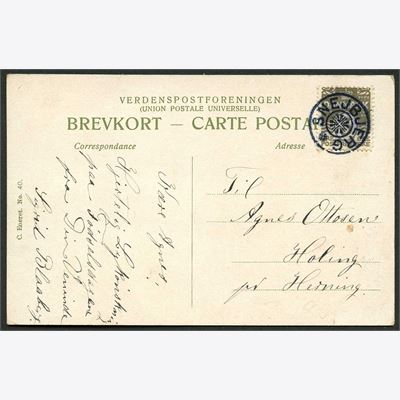 VERDENSPOSTFORENINGEN
(UNION POSTALE UNIVERSELLE)
BREVKORT - CARTE POSTA
Correspondance
Adresse
SNEJBJERG
C. Eneret. No. 40.
Til
Agnes Ottosen
Holing
pr Herning.
Kære Agnes,
Hjertelig Lykønskning
paa Fødselsdagen
fra Din Veninde
Sigrid